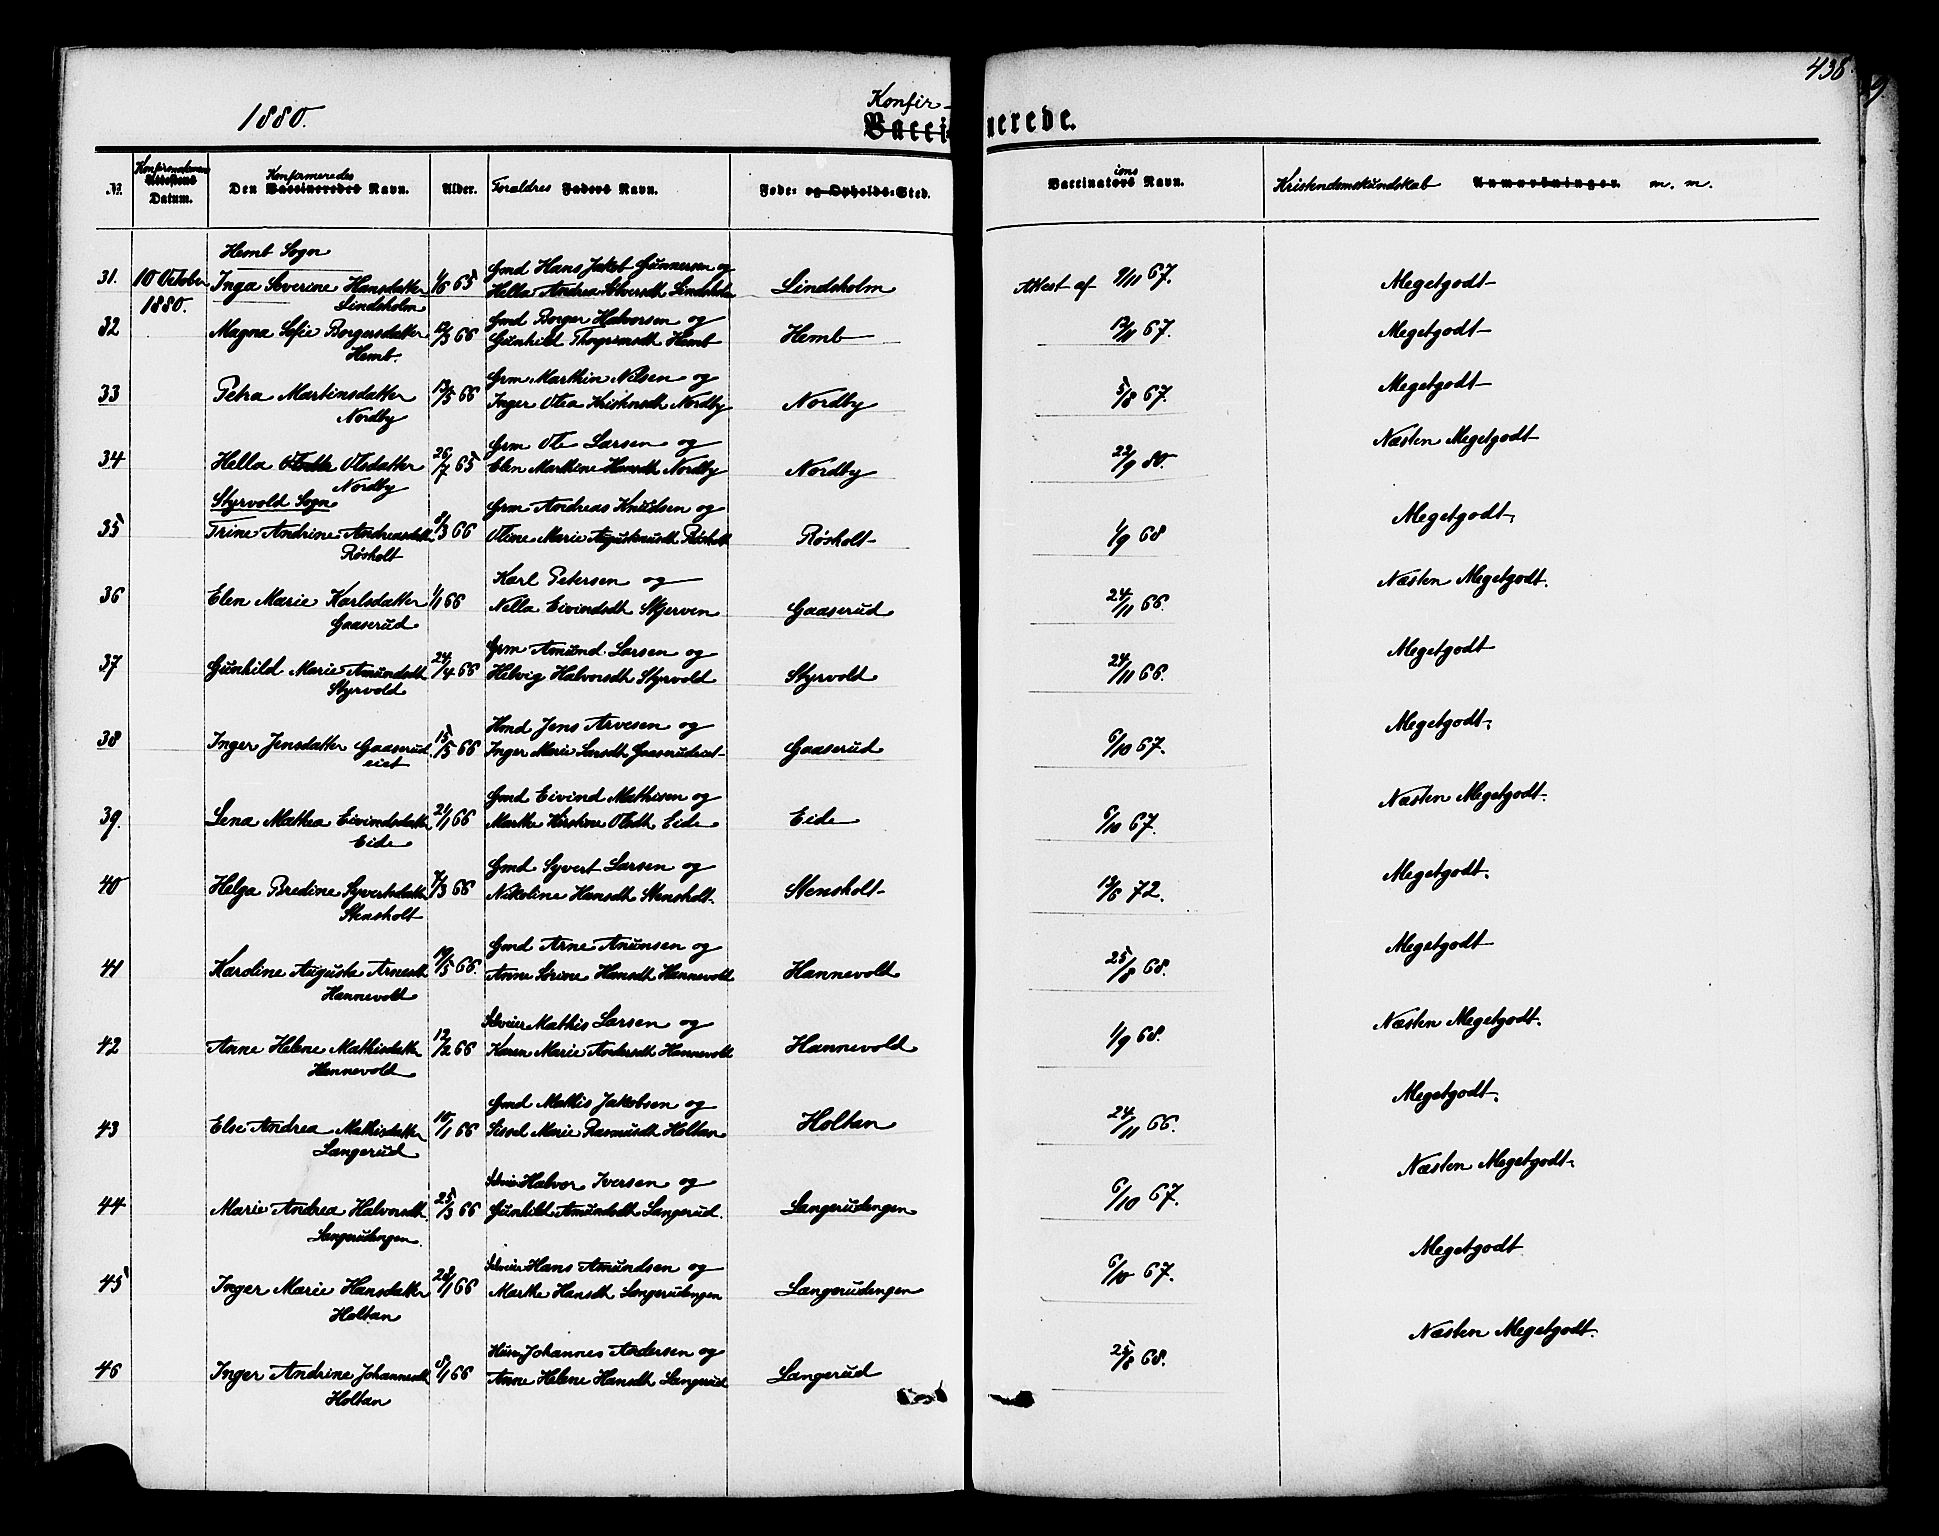 438.
1880.
Konfir-
Vaccinerede.
No. Konfirmationens Attestens Datum. Den Konfirmeredes Vaccineredes Navn. Alder. Forældres Faders Navn. Føde- og Opholds-Sted. Vaccinators ions Navn. Kristendomskundskab Anmærkninger. m. m.
Hemb Sogn
31. 10 October 1880. Inga Severine Hansdatter 1/6 65 Gmd Hans Jakob Gunnersen og
Lindsholm Hella Andrea Lindsholm Lindsholm Attest af 9/11 67. Megetgodt
32 Magna Sofie Borgersdatter 12/3 66 Gmd Borger Halvorsen og
Hemb. Gunhild Hemb Hemb 13/11 67. Megetgodt
33 Petra Martinsdatter 13/5 66 Grm Marthin Nilsen og
Nordby Inger Olea Nordby Nordby 5/8 67. Megetgodt
34 Hella Olsdatter 26/7 65 Grm Ole Larsen og
Nordby Elen Marthine Hansdt Nordby Nordby 22/9 80. Næsten Megetgodt
Styrvold Sogn
35 Trine Andrine Andreasdatter 8/3 66 Grm Andreas Knudsen og
Røsholt Oline Marie Røsholt Røsholt 1/9 68 Megetgodt
36 Elen Marie Karlsdatter 1/1 66 Karl Petersen og
Gaaserud Nella Eivindsdt Skjerven Gaaserud 24/11 66. Næsten Megetgodt.
37 Gunhild Marie Amundsdt 24/4 66 Grm Amund Larsen og
Styrvold Helvig Halvorsdt Styrvold Styrvold 24/11 66. Megetgodt
38 Inger Jensdatter Gaaserud 15/5 66 Hmd Jens Arvesen og
eiet Inger Marie Larsdt Gaaserudeiet Gaaserud 6/10 67. Megetgodt
39. Lena Mathea Eivindsdatter 21/1 66 Gmd Eivind Mathisen og
Eide Marthe Kirstine Olsdt Eide Eide 6/10 67. Næsten Megetgodt.
40 Helga Bredine Syvertsdatter 7/3 66 Gmd Syvert Larsen og
Stensholt Nikoline Hansdt Stensholt. Stensholt 13/6 72. Megetgodt.
41 Karoline Auguste Arnesdt 19/5 66. Gmd Arne Anunsen og
Hannevold Anne Sørine Hansdt Hannevold Hannevold 25/8 68. Megetgodt
42 Anne Helene Mathisdatter 12/2 66 Selveier Mathis Larsen og
Hannevold Karen Marie Andersdt Hannevold Hannevold 1/9 68. Næsten Megetgodt.
43 Else Andrea Mathisdatter 10/1 66 Gmd Mathis Jakobsen og
Langerud Sissel Marie Rasmusdt Holtan Holtan 24/11 66. Megetgodt.
44 Marie Andrea Halvorsdt. 25/3 66 Selveier Halvor Iversen og
Langerudengen Gunhild Amundsdt Langerud. Langerudengen 6/10 67. Næsten Megetgodt
45 Inger Marie Hansdatter 28/1 66 Selveier Hans Amundsen og
Holtan Marthe Hansdt Langerudengen Langerudengen 6/10 67. Megetgodt
46 Inger Andrine Johannesdt 8/1 66 Johannes Andersen og
Holtan Anne Helene Hansdt Langerud Langerud 25/8 68. Næsten Megetgodt.